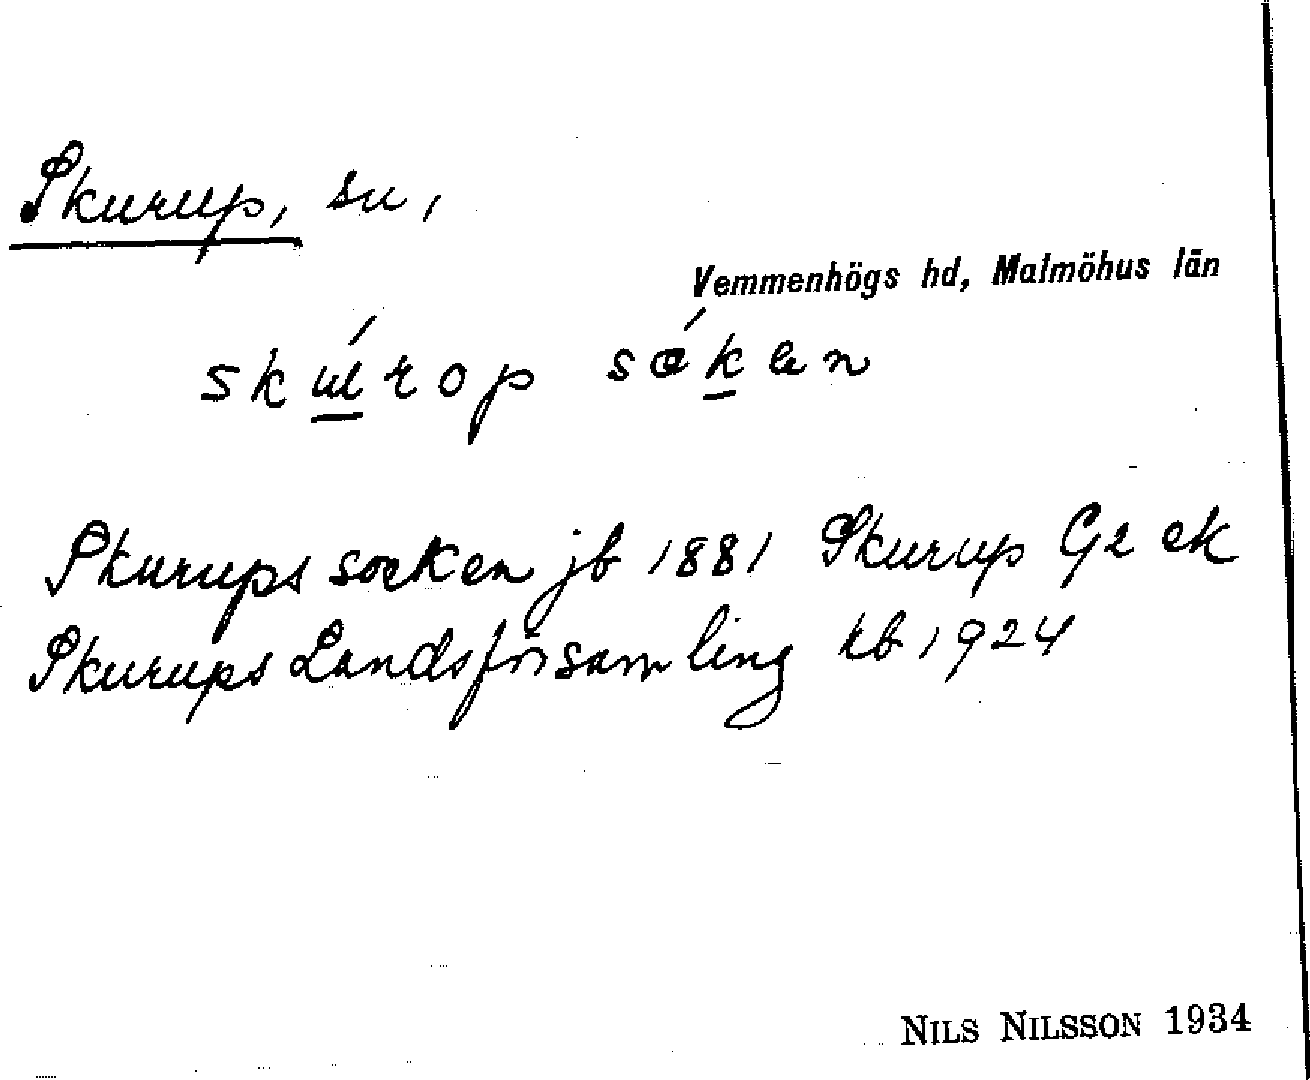 Skurup, sn,
Vemmenhögs hd, Malmöhus län
skúrop søken
Skurups socken jb 1881 Skurup G2 ek
Skurups Landsförsamling kb 1924
NILS NILSSON 1934